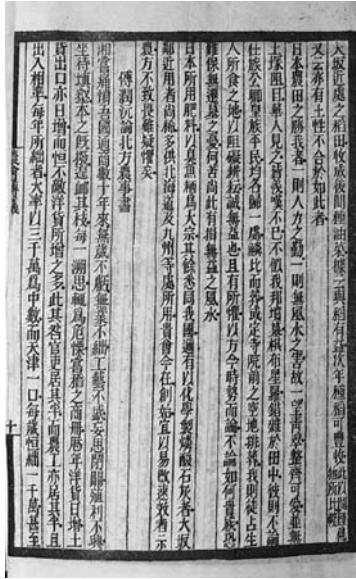 大坂近處之稻田收成後間種油菜據云與稻有益次年種稻可豐收
又云亦有土性不合於如此者
日本農田之勝我者一則人力之勤一則無風水之害故一望青葱整齊可愛並無
土塚阻日華人見之皆羨嘆不已不似我邦墳墓棋布星羅錯雜於田中彼則不論
仕族公卿皇族平民均各歸一處鱗比而葬或定寺院前之空地排葬我則徒占生
人所食之地以阻礙耕耘誠無益也且有所懼以方今時勢而論不論如何貴族恐
難保無遷墓之憂何苦尚此有損無益之風水
日本所用肥料以莫魚粕為大宗其餘悉同我國邇有以化學製燐酸石灰者大坂
鄰近用者尚稀多供北海道及九州等處所用貴會今在創始宜以易散速效者示
農方不致畏難疑懼矣
傅潤沅論北方農事書
湘當痛吾國通商數十年來無歲不虧無業不絀工藝不盛妄思閉關殖利不興
坐待壞本之既撥遑卹其枝每一溯思輒為危慄當稽之商冊歷年洋貨日增土
貨出口亦日增而恒不敵洋貨所增之多此其咎官吏居其半而農工亦居其半且
出入相準每年所絀者大率以三千萬為中數而天津一口每歲恒絀一千萬甚至
十